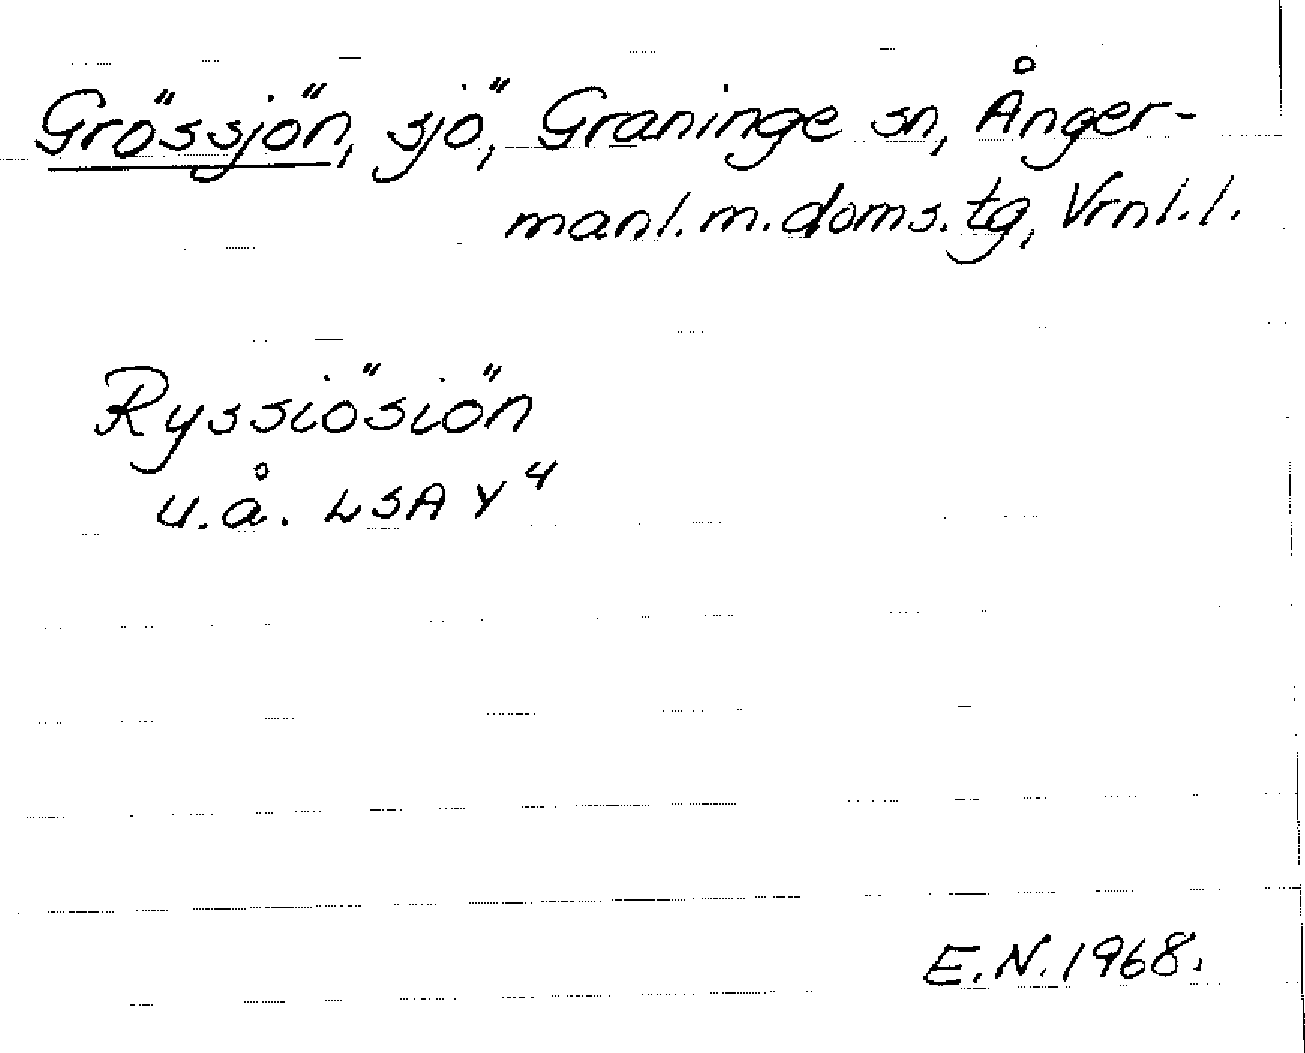 Grössjön, sjö, Graninge sn, Ånger-
manl. m. doms. tg, Vrnl. l.
Ryssiösiön
u.å. LSA Y4
E.N. 1968.